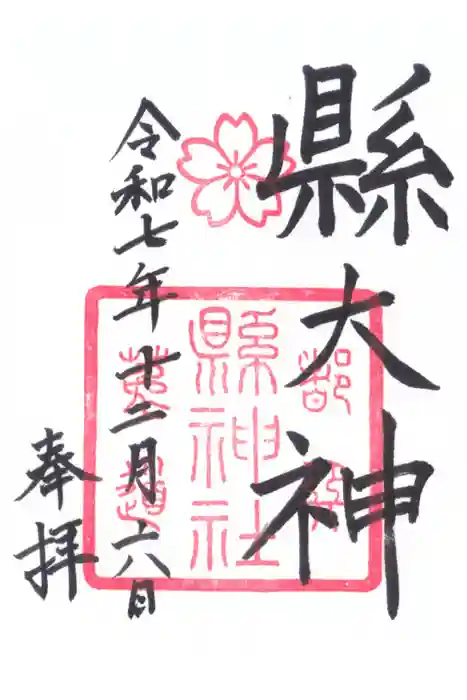 縣大神
令和七年十二月六日
奉拝
縣神社